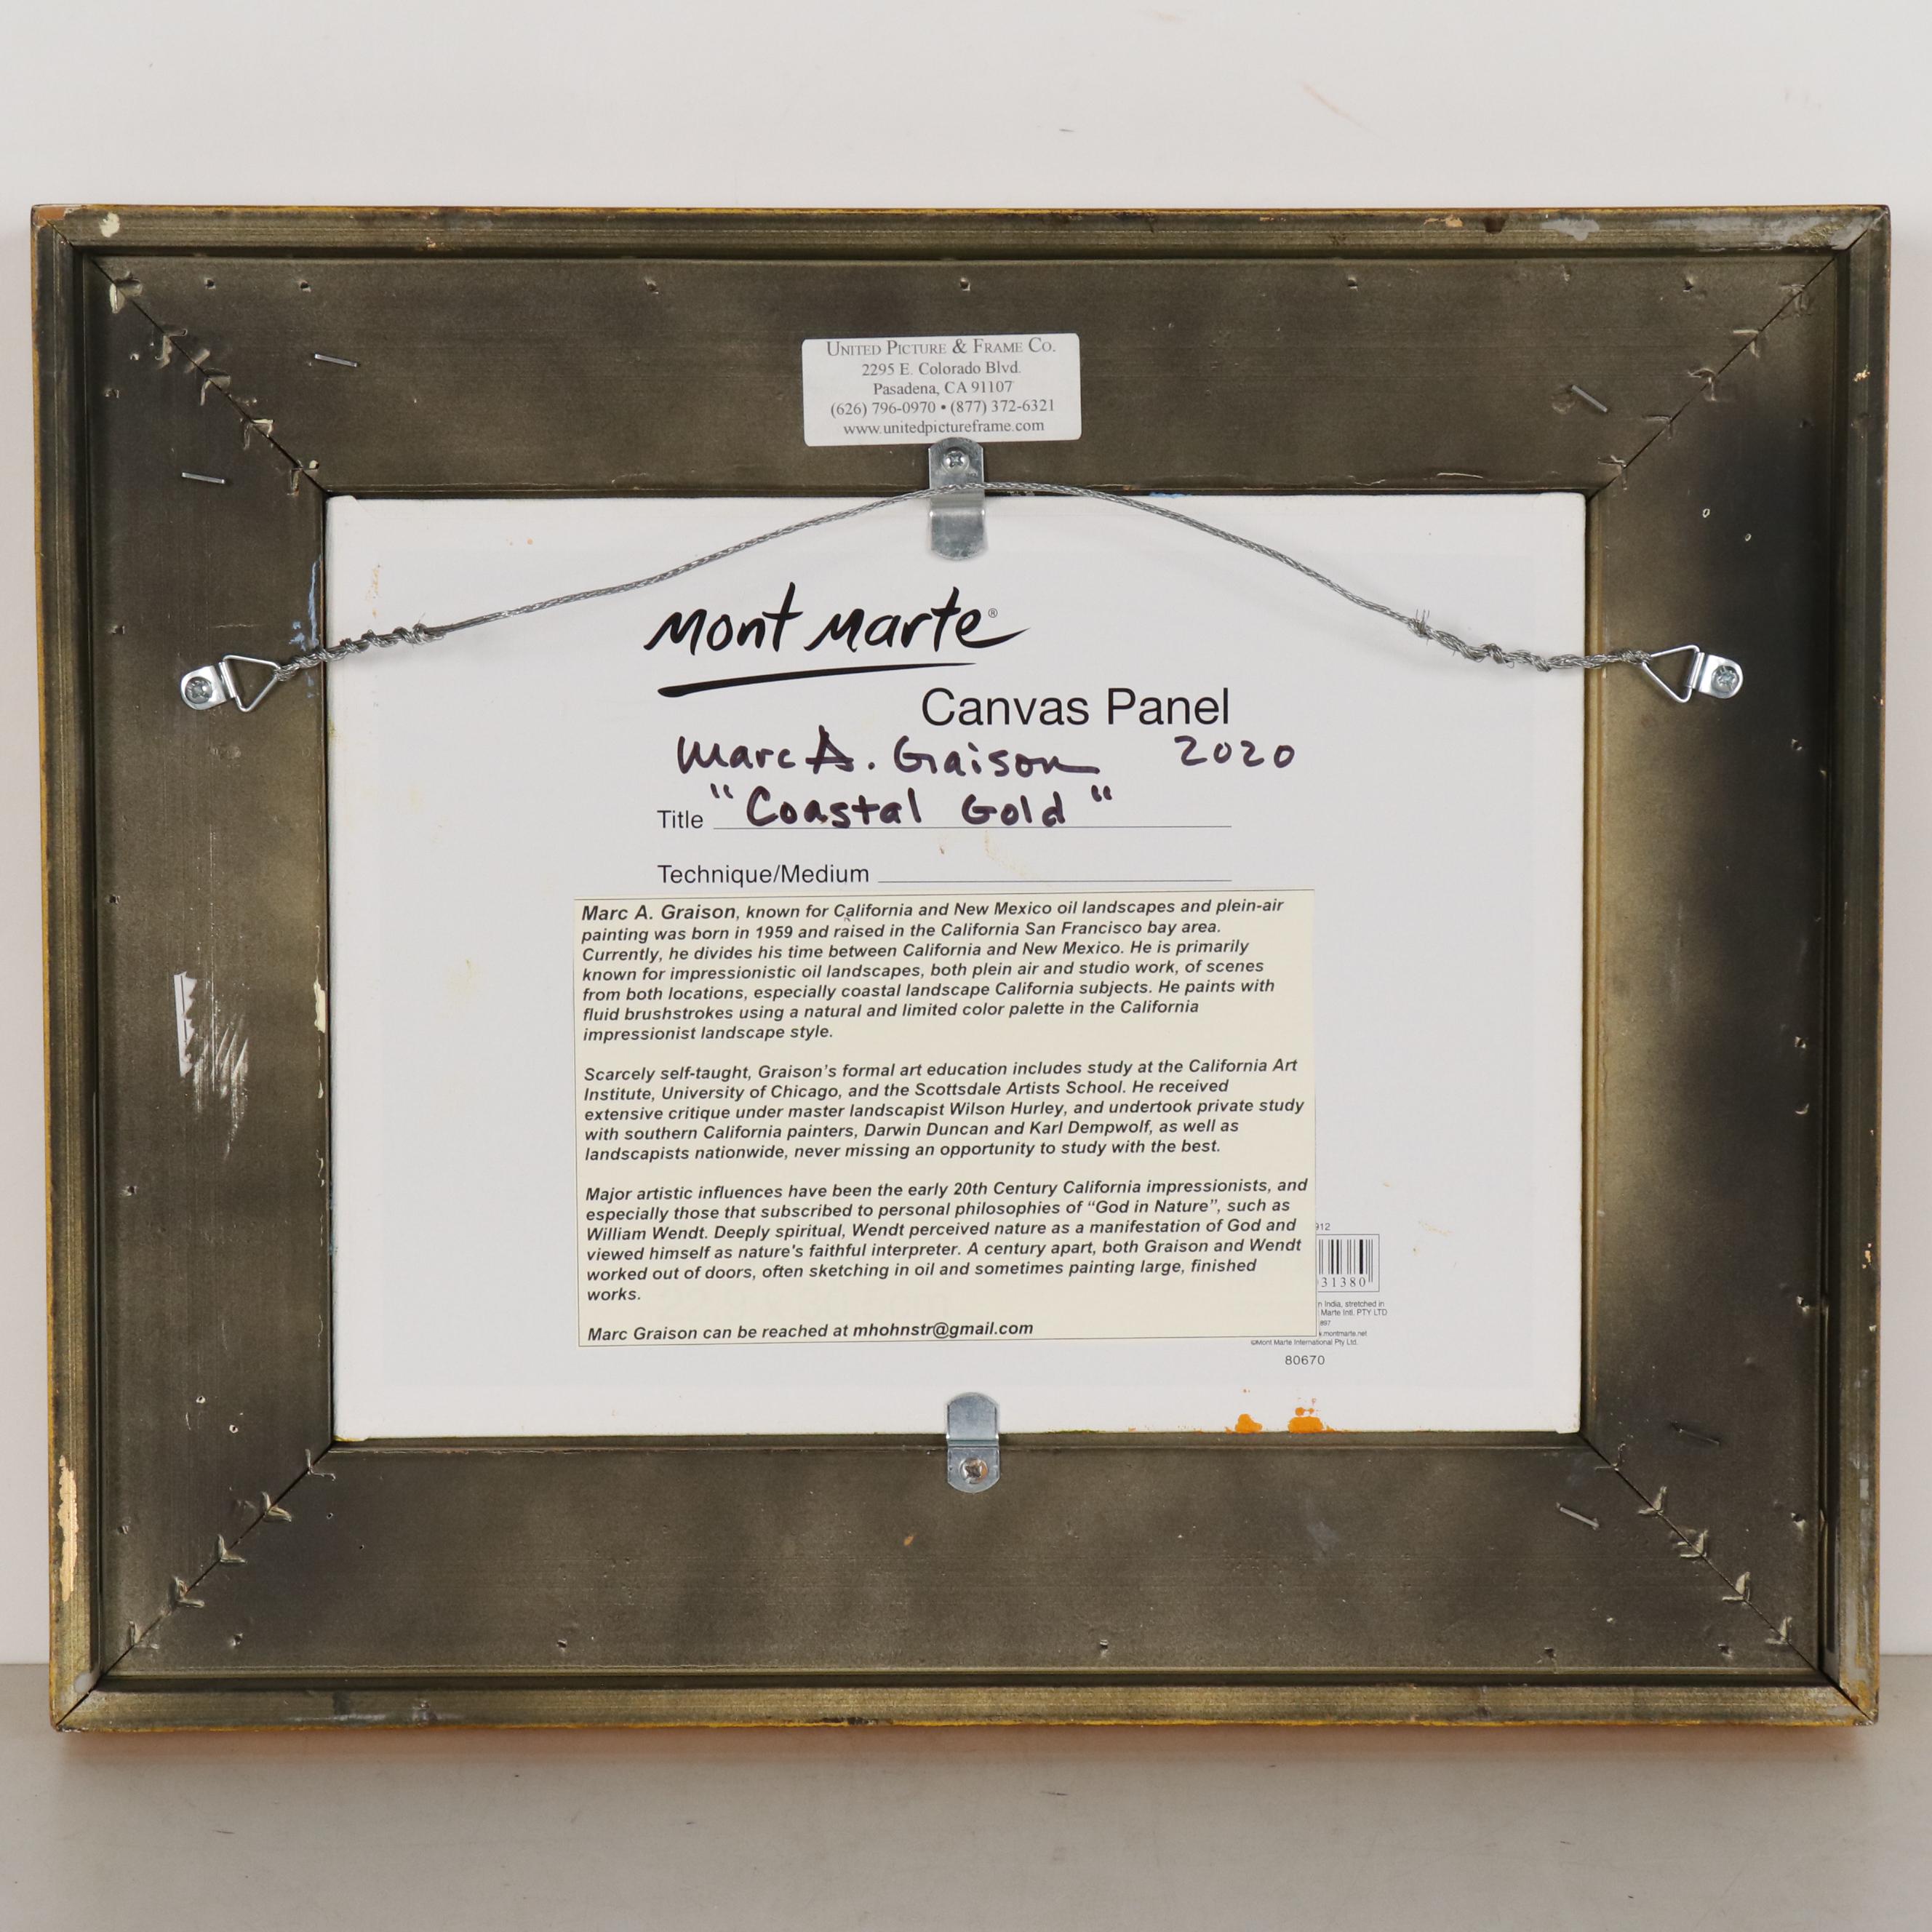 UNITED PICTURE & FRAME CO.
2295 E. Colorado Blvd.
Pasadena, CA 91107
(626) 796-0970 • (877) 372-6321
www.unitedpictureframe.com
Mont Marte®
Canvas Panel
Marc A. Graison 2020
Title "Coastal Gold"
Technique/Medium
Marc A. Graison, known for California and New Mexico oil landscapes and plein-air
painting was born in 1959 and raised in the California San Francisco bay area.
Currently, he divides his time between California and New Mexico. He is primarily
known for impressionistic oil landscapes, both plein air and studio work, of scenes
from both locations, especially coastal landscape California subjects. He paints with
fluid brushstrokes using a natural and limited color palette in the California
impressionist landscape style.
Scarcely self-taught, Graison's formal art education includes study at the California Art
Institute, University of Chicago, and the Scottsdale Artists School. He received
extensive critique under master landscapist Wilson Hurley, and undertook private study
with southern California painters, Darwin Duncan and Karl Dempwolf, as well as
landscapists nationwide, never missing an opportunity to study with the best.
Major artistic influences have been the early 20th Century California impressionists, and
especially those that subscribed to personal philosophies of “God in Nature”, such as
William Wendt. Deeply spiritual, Wendt perceived nature as a manifestation of God and
viewed himself as nature's faithful interpreter. A century apart, both Graison and Wendt
worked out of doors, often sketching in oil and sometimes painting large, finished
works.
Marc Graison can be reached at mhohnstr@gmail.com
912
31380
n India, stretched in
Marte Intl. PTY LTD
897
montmarte.net
©Mont Marte International Pty Ltd.
80670